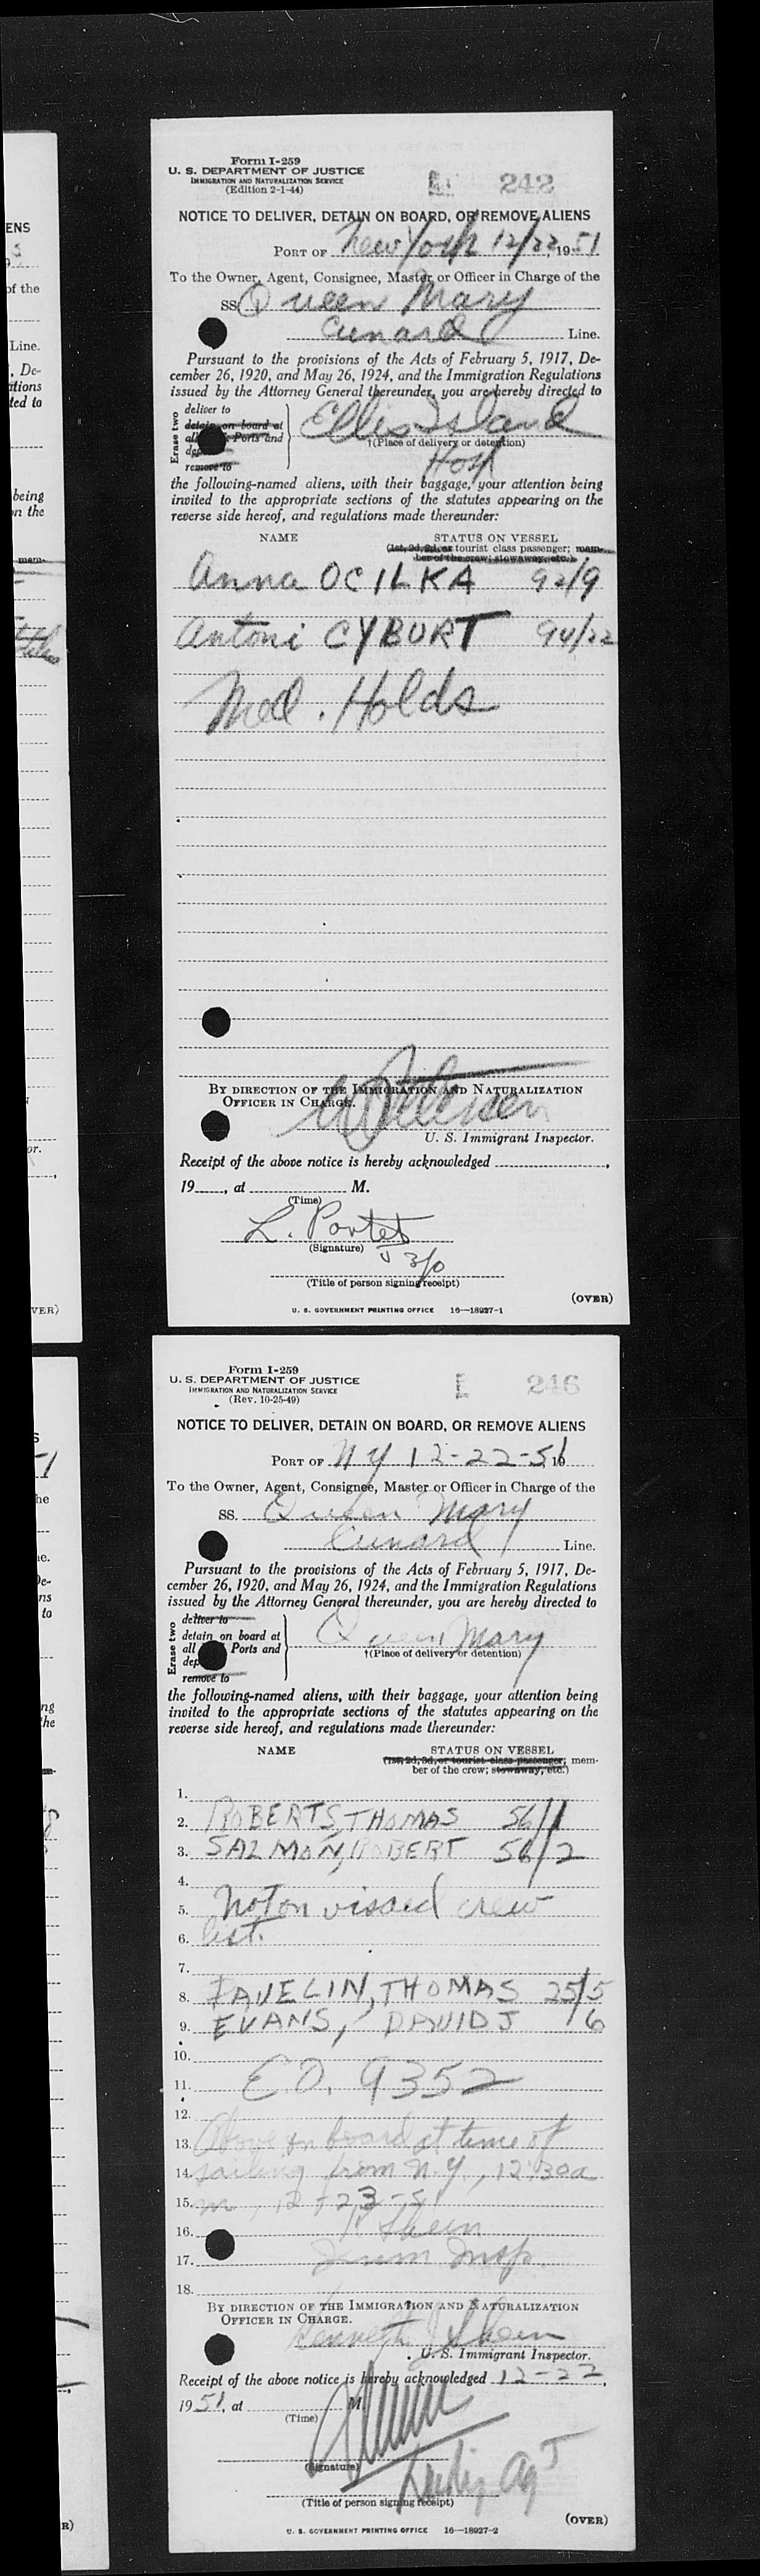 Form I-259
U. S. DEPARTMENT OF JUSTICE
IMMIGRATION AND NATURALIZATION SERVICE
(Edition 2-1-44)
242
NOTICE TO DELIVER, DETAIN ON BOARD, OR REMOVE ALIENS
PORT OF New York 12/22, 1951
To the Owner, Agent, Consignee, Master or Officer in Charge of the
SS Queen Mary
Cunard Line.
Pursuant to the provisions of the Acts of February 5, 1917, De-
cember 26, 1920, and May 26, 1924, and the Immigration Regulations
issued by the Attorney General thereunder, you are hereby directed to
Erase two
deliver to
detain on board at
all Ports and
remove to
Ellis Island
†(Place of delivery or detention)
Hosp
the following-named aliens, with their baggage, your attention being
invited to the appropriate sections of the statutes appearing on the
reverse side hereof, and regulations made thereunder:
NAME STATUS ON VESSEL
(1st, 2d, 3d, or tourist class passenger; mem-
ber of the crew; stowaway, etc.)
Anna OCILKA 92/9
Antoni CYBURT 94/22
Med. Holds
BY DIRECTION OF THE IMMIGRATION AND NATURALIZATION
OFFICER IN CHARGE.
U. S. Immigrant Inspector.
Receipt of the above notice is hereby acknowledged
19, at M.
(Time)
L. Porter
(Signature)
(Title of person signing receipt)
(OVER)
U. S. GOVERNMENT PRINTING OFFICE 16—18927-1
Form I-259
U. S. DEPARTMENT OF JUSTICE
IMMIGRATION AND NATURALIZATION SERVICE
(Rev. 10-25-49)
246
NOTICE TO DELIVER, DETAIN ON BOARD, OR REMOVE ALIENS
PORT OF N Y 12-22-51 19
To the Owner, Agent, Consignee, Master or Officer in Charge of the
SS. Queen Mary
Cunard Line.
Pursuant to the provisions of the Acts of February 5, 1917, De-
cember 26, 1920, and May 26, 1924, and the Immigration Regulations
issued by the Attorney General thereunder, you are hereby directed to
Erase two
deliver to
detain on board at
all Ports and
remove to
Queen Mary
†(Place of delivery or detention)
the following-named aliens, with their baggage, your attention being
invited to the appropriate sections of the statutes appearing on the
reverse side hereof, and regulations made thereunder:
NAME STATUS ON VESSEL
(1st, 2d, 3d, or tourist class passenger; mem-
ber of the crew; stowaway, etc.)
1.
2. ROBERTS, THOMAS 56/1
3. SALMON, ROBERT 56/2
4.
5. Not on visaed crew
6. list.
7.
8. FAVELIN, THOMAS 25/5
9. EVANS, DAVID J /6
10.
11. E.O. 9352
12.
13. Above on board at time of
14. sailing from N.Y., 12:30 a
15. m, 12-23-51
16. K Shein
17. Immi Insp.
18.
BY DIRECTION OF THE IMMIGRATION AND NATURALIZATION
OFFICER IN CHARGE.
Kenneth Shein
U. S. Immigrant Inspector.
Receipt of the above notice is hereby acknowledged 12-22,
1951, at M.
(Time)
(Signature)
(Title of person signing receipt)
(OVER)
U. S. GOVERNMENT PRINTING OFFICE 16—18927-2